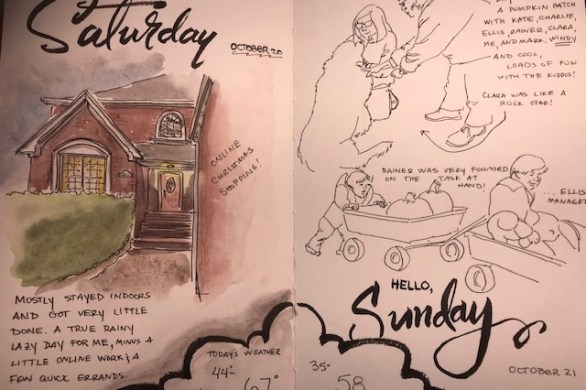 Saturday
OCTOBER 20
ONLINE
CHRISTMAS
SHOPPING!
MOSTLY STAYED INDOORS
AND GOT VERY LITTLE
DONE. A TRUE RAINY
LAZY DAY FOR ME, MINUS A
LITTLE ONLINE WORK & A
FEW QUICK ERRANDS.
TODAY'S WEATHER
44°
67°
A PUMPKIN PATCH
WITH KATIE, CHARLIE,
ELLIS, RAINER, CLARA,
ME, AND MARK. WINDY
AND COOL,
LOADS OF FUN
WITH THE KIDDOS!
CLARA WAS LIKE A
ROCK STAR!
RAINER WAS VERY FORWARD
ON THE TASK AT
HAND!
... ELLIS
MANAGER
HELLO,
Sunday
OCTOBER 21
35°
58